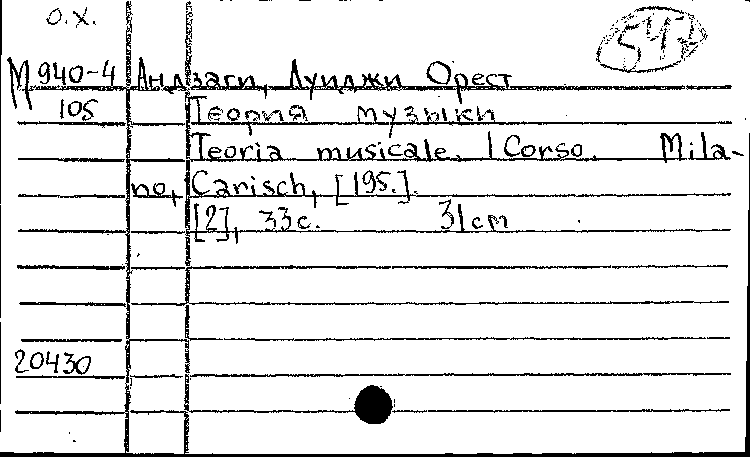 О.Х.
М 940-4 Андзаги, Луиджи Орест
105 Теория музыки
Teoria musicale. I Corso. Mila-
no, Carisch, [195.].
[2], 33 с. 31 cm
20430